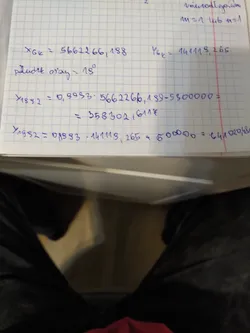 m=1 lub n=1
XGK = 5662266,188 YGK = 141115,265
osiowy = 15°
X1992 = 0,9993 · 5662266,188 - 5300000 =
= 358302,6118
Y1992 = 0,9993 · 141115,265 + 500000 =